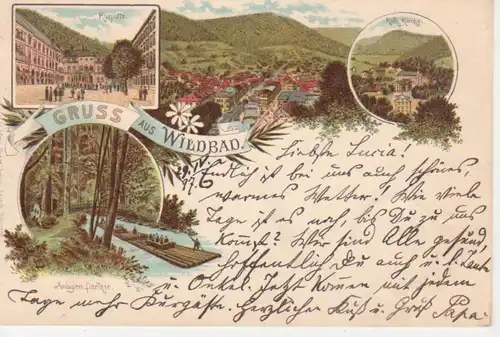 Kurplatz.
Kath. Kirche.
GRUSS AUS WILDBAD.
Anlagen-Partie.
Liebste Lucia!
Endlich ist bei uns auch schönes,
warmes Wetter! Wie viele
Tage ist es noch, bis Du zu uns
kommst? Wir sind Alle gesund,
hoffentlich Du auch u. l. Tante
u. Onkel. Jetzt kommen mit jedem
Tage mehr Kurgäste. Herzlichen Kuß u. Gruß Papa.